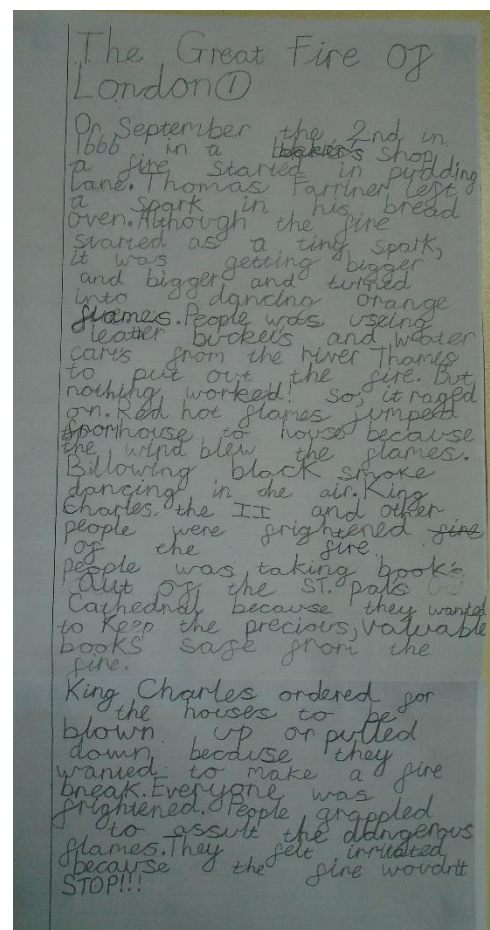 The Great Fire of
London ①
On September the 2nd in
1666 in a baker's shop
a fire started in pudding
Lane. Thomas Farriner left
a spark in his bread
oven. Although the fire
started as a tiny spark,
it was getting bigger
and bigger and turned
into dancing orange
flames. People was useing
leatter buckets and water
carts from the river Thames
to put out the fire. But
nothing worked! So, it raged
on. Red hot flames jumped
from house to house because
the wind blew the flames.
Billowing black smoke
dancing in the air. King
Charles the II and other
people were frightened fire
of the fire.
people was taking book's
out of the ST. pals
Cathedral because they wanted
to keep the precious, valuable
books safe from the
fire.
King Charles ordered for
the houses to be
blown up or pulled
down, because they
wanted to make a fire
break. Everyone was
frightened. People grappled
to assult the dangerous
flames. They felt irritated
because the fire wovdn't
STOP!!!